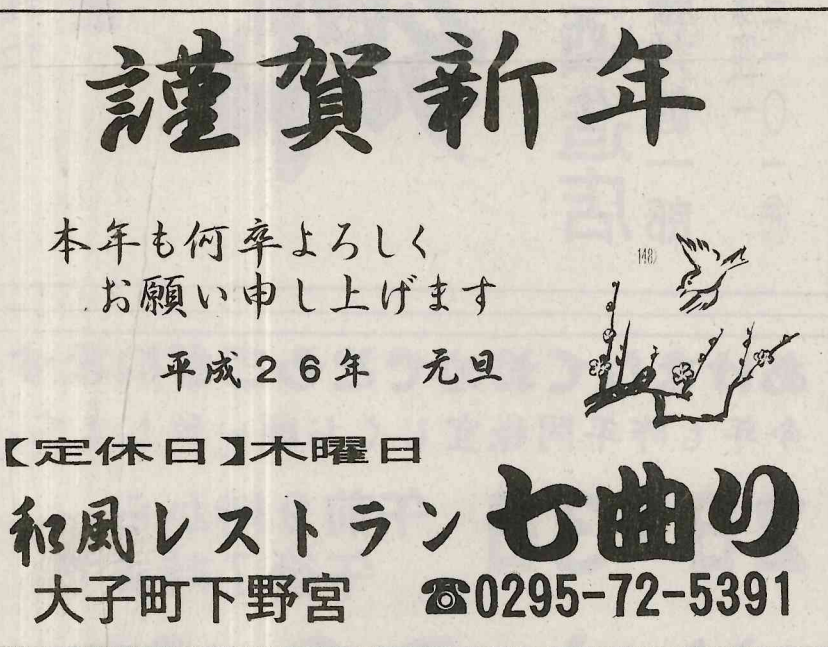 謹賀新年
本年も何卒よろしく
お願い申し上げます
148)
平成26年 元旦
【定休日】木曜日
和風レストラン 七曲り
大子町下野宮 ☎0295-72-5391